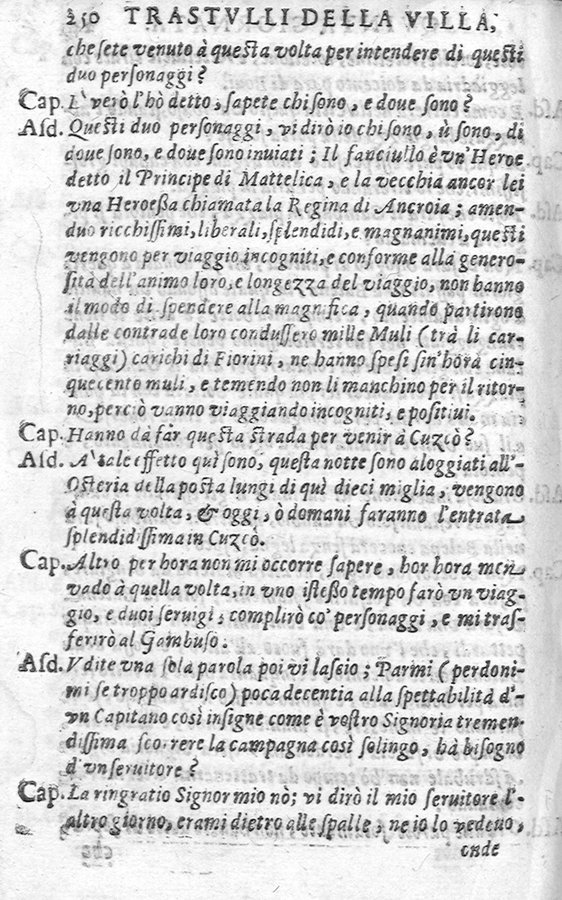 250 TRASTVLLI DELLA VILLA,
che sete venuto à questa volta per intendere di questi
duo personaggi?
Cap. E' verò l'hò detto, sapete chi sono, e doue sono?
Asd. Questi duo personaggi, vi dirò io chi sono, ù sono, di
doue sono, e doue sono inuiati; Il fanciullo è vn'Heroe
detto il Principe di Mattelica, e la vecchia ancor lei
vna Heroessa chiamata la Regina di Ancroia; amen-
duo ricchissimi, liberali, splendidi, e magnanimi, questi
vengono per viaggio incogniti, e conforme alla genero-
sità dell'animo loro, e longezza del viaggio, non hanno
il modo di spendere alla magnifica, quando partirono
dalle contrade loro condussero mille Muli (trà li car-
riaggi) carichi di Fiorini, ne hanno spesi sin'horà cin-
quecento muli, e temendo non li manchino per il ritor-
no, perciò vanno viaggiando incogniti, e positiui.
Cap. Hanno dà fàr questa strada per venir à Cuzcò?
Asd. A' tale effetto quì sono, questa notte sono aloggiati all'
Osteria della posta lungi di quì dieci miglia, vengono
à questa volta, & oggi, ò domani faranno l'entrata
splendidissima in Cuzcò.
Cap. Altro per hora non mi occorre sapere, hor hora men
vado à quella volta, in vno istesso tempo farò vn viag-
gio, e duoi seruigi, complirò co' personaggi, e mi tras-
ferirò al Gambuso.
Asd. Vdite vna sola parola poi vi lascio; Parmi (perdoni-
mi se troppo ardisco) poca decentia alla spettabilità d'
vn Capitano così insigne come è vostro Signoria tremen-
dissima scorrere la campagna così solingo, hà bisogno
d'vn seruitore?
Cap. La ringratio Signor mio nò; vi dirò il mio seruitore l'
altro giorno, erami dietro alle spalle, ne io lo vedeuo,
onde